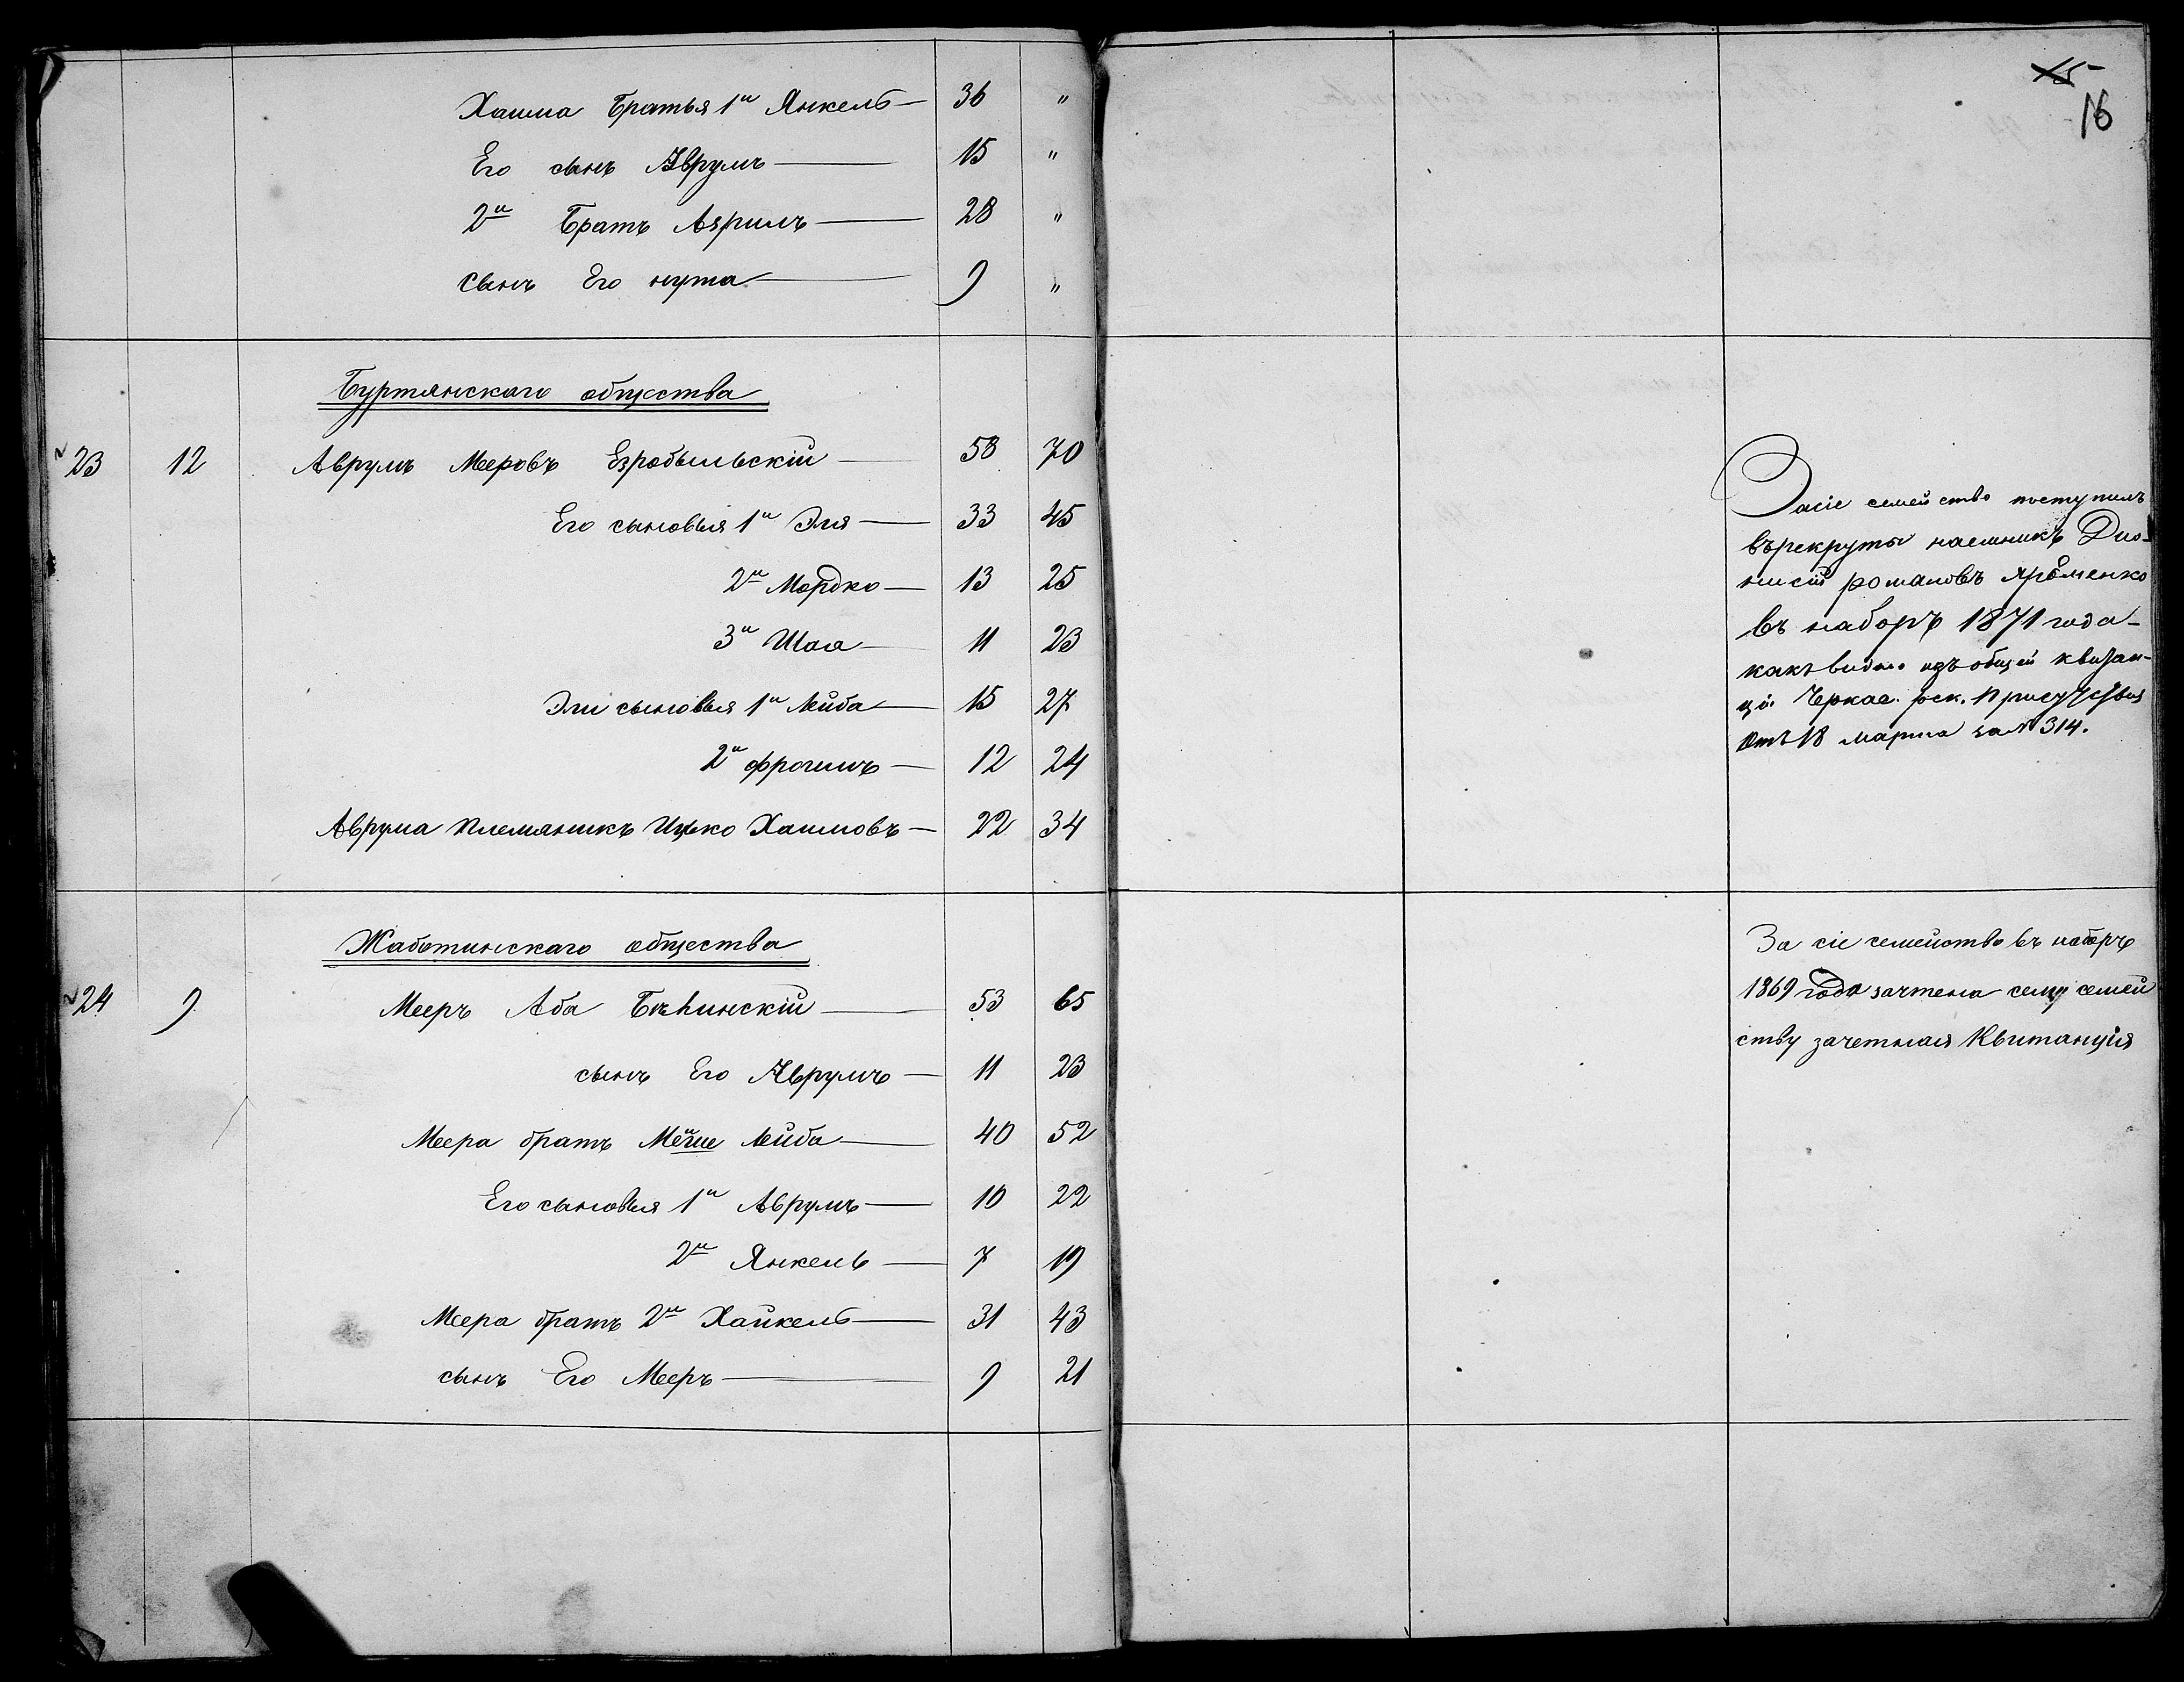 15
16
Хаима Братья 1й Янкель — 36 "
Его сынъ Аврумъ — 15 "
2й Братъ Азрилъ — 28 "
сынъ Его нута — 9 "
Буртянскаго общества
23 12 Аврумъ Меровъ — 58 70
Его сыновья 1й Эля — 33 45
2й Мордко — 13 25
3й Шая — 11 23
Эли сыновья 1й Лейба — 15 27
2й фроимъ — 12 24
Аврума племяникъ Ицко Хаимовъ — 22 34
Засіе семейство поступилъ
върекруты наемникъ Дио-
нисій романовъ Ярёменко
въ наборъ 1871 года
какъ видно изъ общей квитан-
ціи Черкас. рек. Присутствія
отъ 18 марта за № 314.
Жаботинскаго общества
24 9 Мееръ Аба — 53 65
сынъ Его Аврумъ — 11 23
Меера братъ Лейба — 40 52
Его сыновья 1й Аврумъ — 10 22
2й Янкель — 7 19
Меера братъ 2й Хайкель — 31 43
сынъ Его Мееръ — 9 21
За сіе семейство въ наборъ
1869 года зачтена сему семей
ству зачетная Квитанція